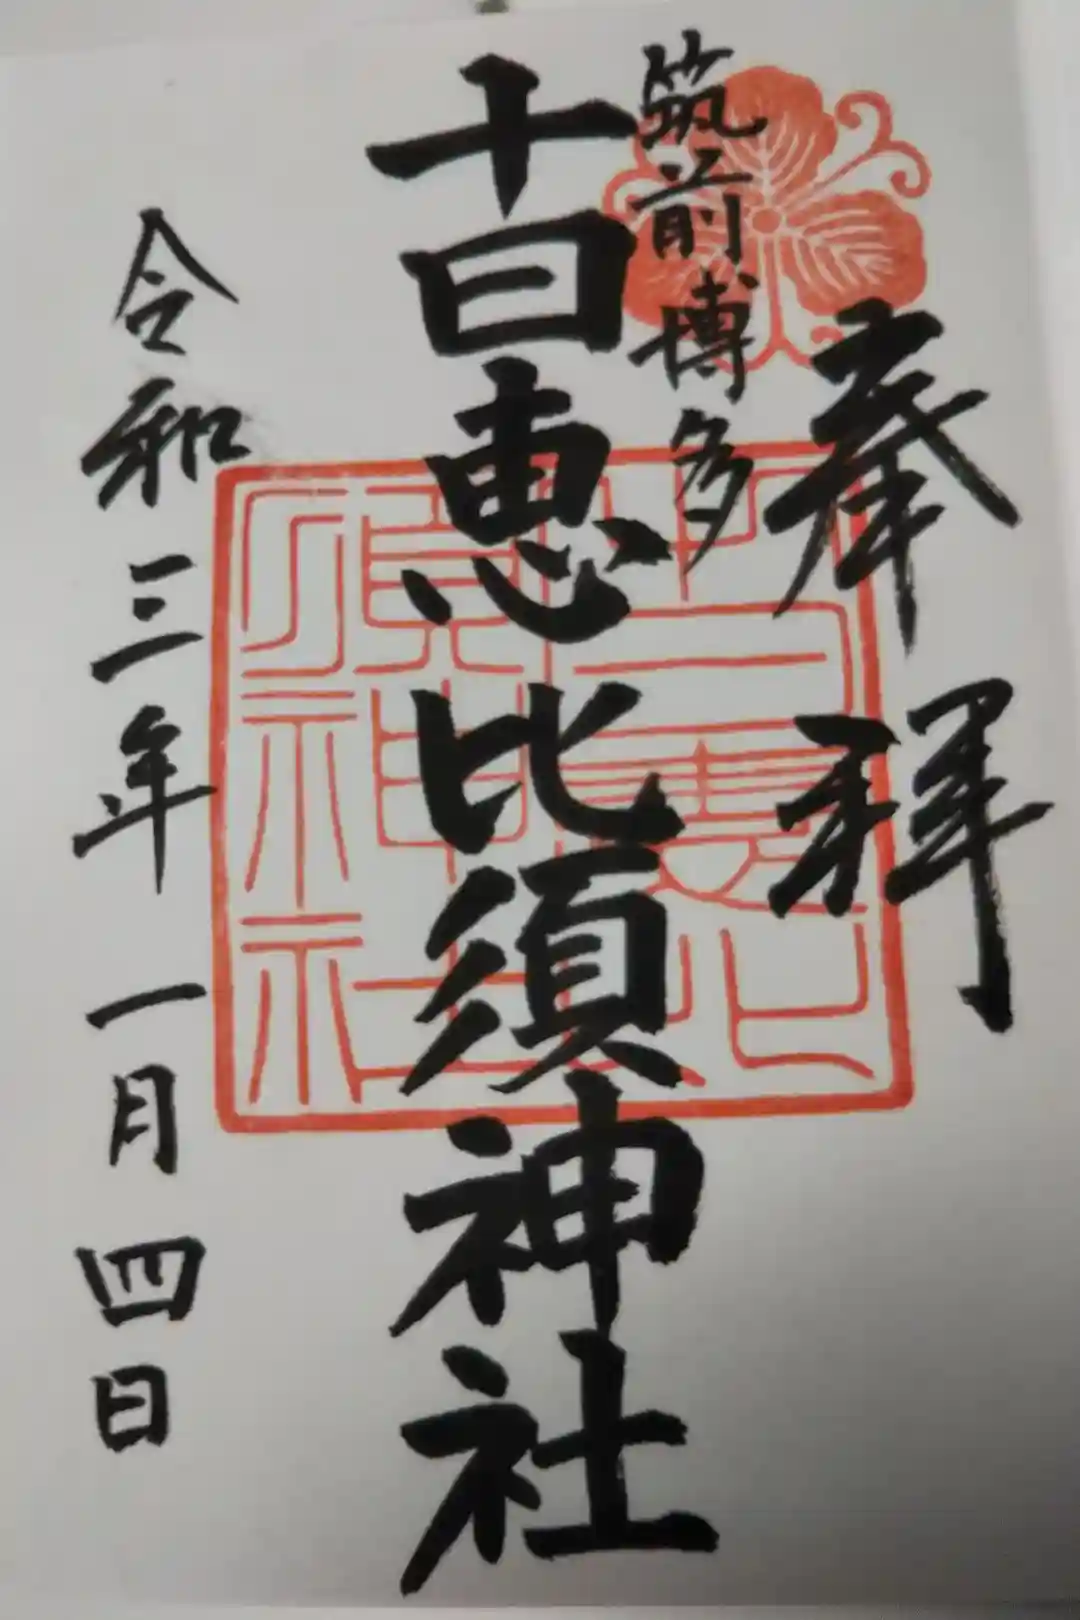 奉拜
筑前博多
十日恵比須神社
令和三年一月四日
十日恵比
須神社